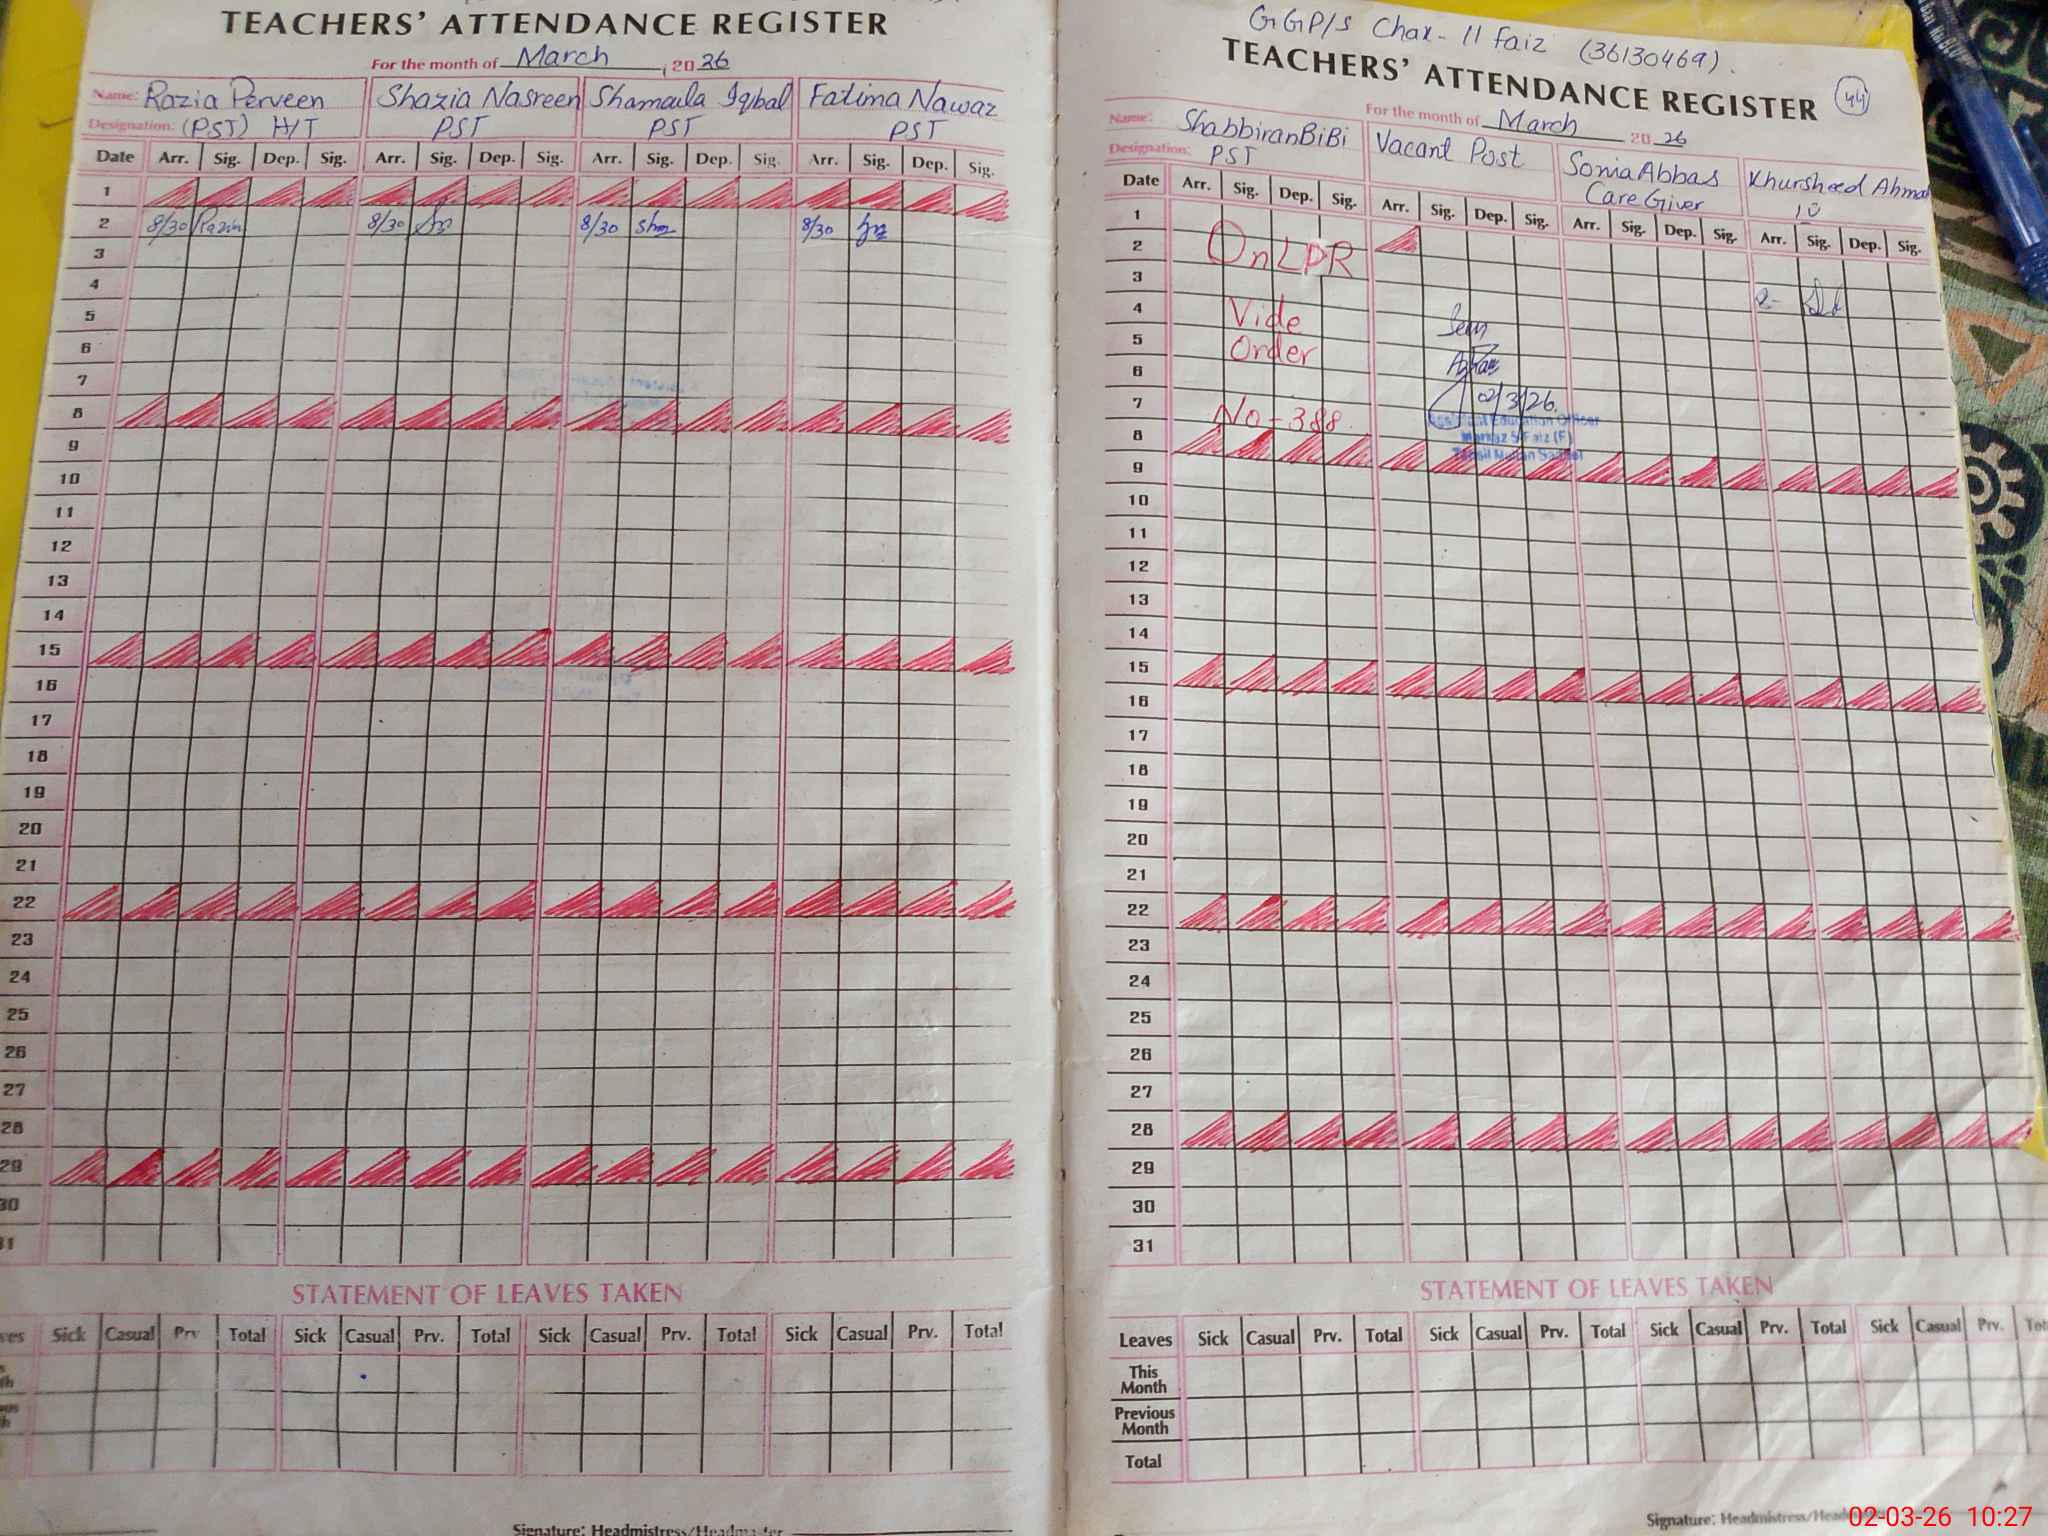 TEACHERS' ATTENDANCE REGISTER
For the month of March, 2026
Name: Razia Perveen Shazia Nasreen Shamaila Iqbal Fatima Nawaz
Designation: (PST) H/T PST PST PST
Date Arr. Sig. Dep. Sig. Arr. Sig. Dep. Sig. Arr. Sig. Dep. Sig. Arr. Sig. Dep. Sig.
1
2 8/30 Razia 8/30 8/30 8/30
3
4
5
6
7
8
9
10
11
12
13
14
15
16
17
18
19
20
21
22
23
24
25
26
27
28
29
30
31
STATEMENT OF LEAVES TAKEN
Sick Casual Prv Total Sick Casual Prv. Total Sick Casual Prv. Total Sick Casual Prv. Total
Signature: Headmistress/Headmaster
GGP/S Chak-11 Faiz (36130469).
TEACHERS' ATTENDANCE REGISTER
44
For the month of March 2026
Name: Shabbiran BiBi Vacant Post Sonia Abbas Khursheed Ahmad
Designation: PST Care Giver
Date Arr. Sig. Dep. Sig. Arr. Sig. Dep. Sig. Arr. Sig. Dep. Sig. Arr. Sig. Dep. Sig.
1
2 On LPR
3
4 Vide
5 Order
6
7 No-388 02/3/26.
Assistant Education Officer
8 Markaz 5-Faiz (F)
Tehsil Multan Saddar
9
10
11
12
13
14
15
16
17
18
19
20
21
22
23
24
25
26
27
28
29
30
31
STATEMENT OF LEAVES TAKEN
Leaves Sick Casual Prv. Total Sick Casual Prv. Total Sick Casual Prv. Total Sick Casual Prv.
This Month
Previous Month
Total
Signature: Headmistress/
02-03-26 10:27